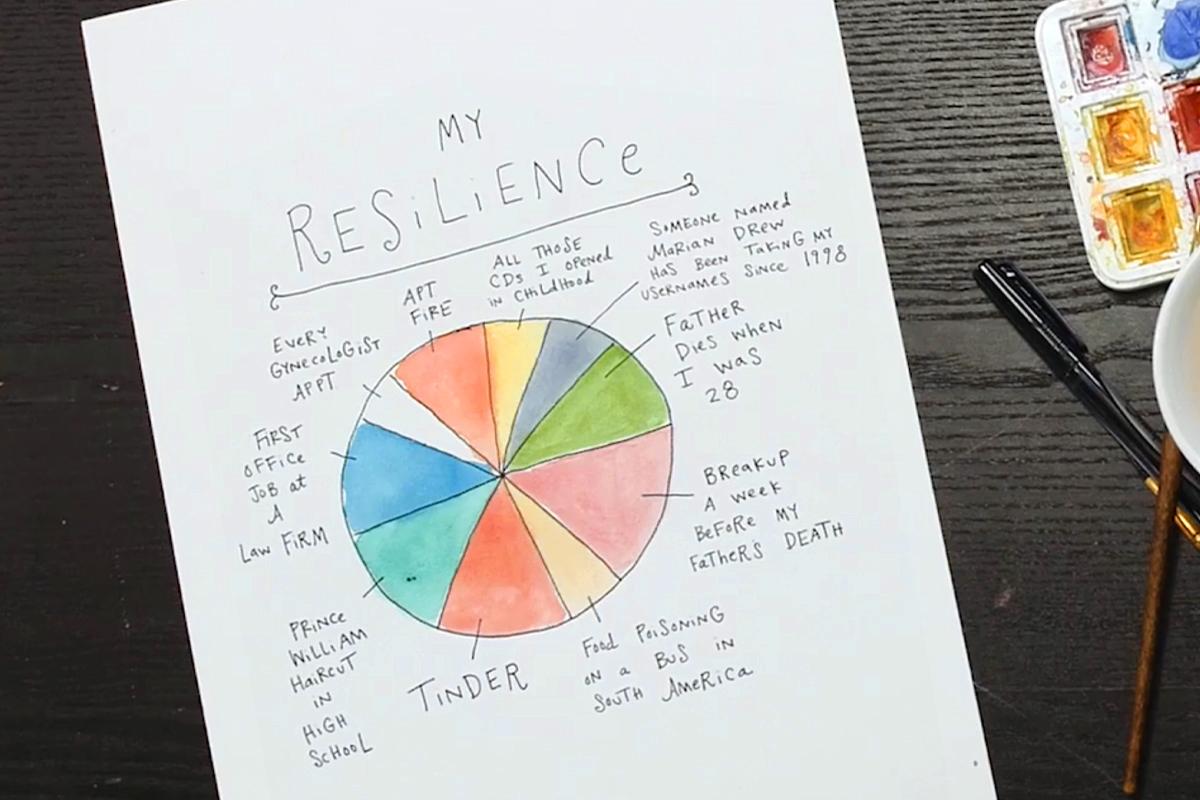 MY
RESiLiENCe
ALL THOSE
CDs I opened
in CHildHood
SOMEONE named
Marian DREW
Has Been Taking MY
USerNAMES Since 1998
FaTHER
Dies when
I was
28
BREakUP
A week
BeFoRe MY
FaTHeR'S DEATH
Food PoiSONING
on a BUS in
SoUTH AmeRica
TiNDER
PRiNce
WiLLiAM
HaiRcuT
iN
HiGH
ScHooL
FiRST
oFFice
JoB at
A
Law FiRM
EveRY
GYNecoLoGiST
APPT
APT
FiRE